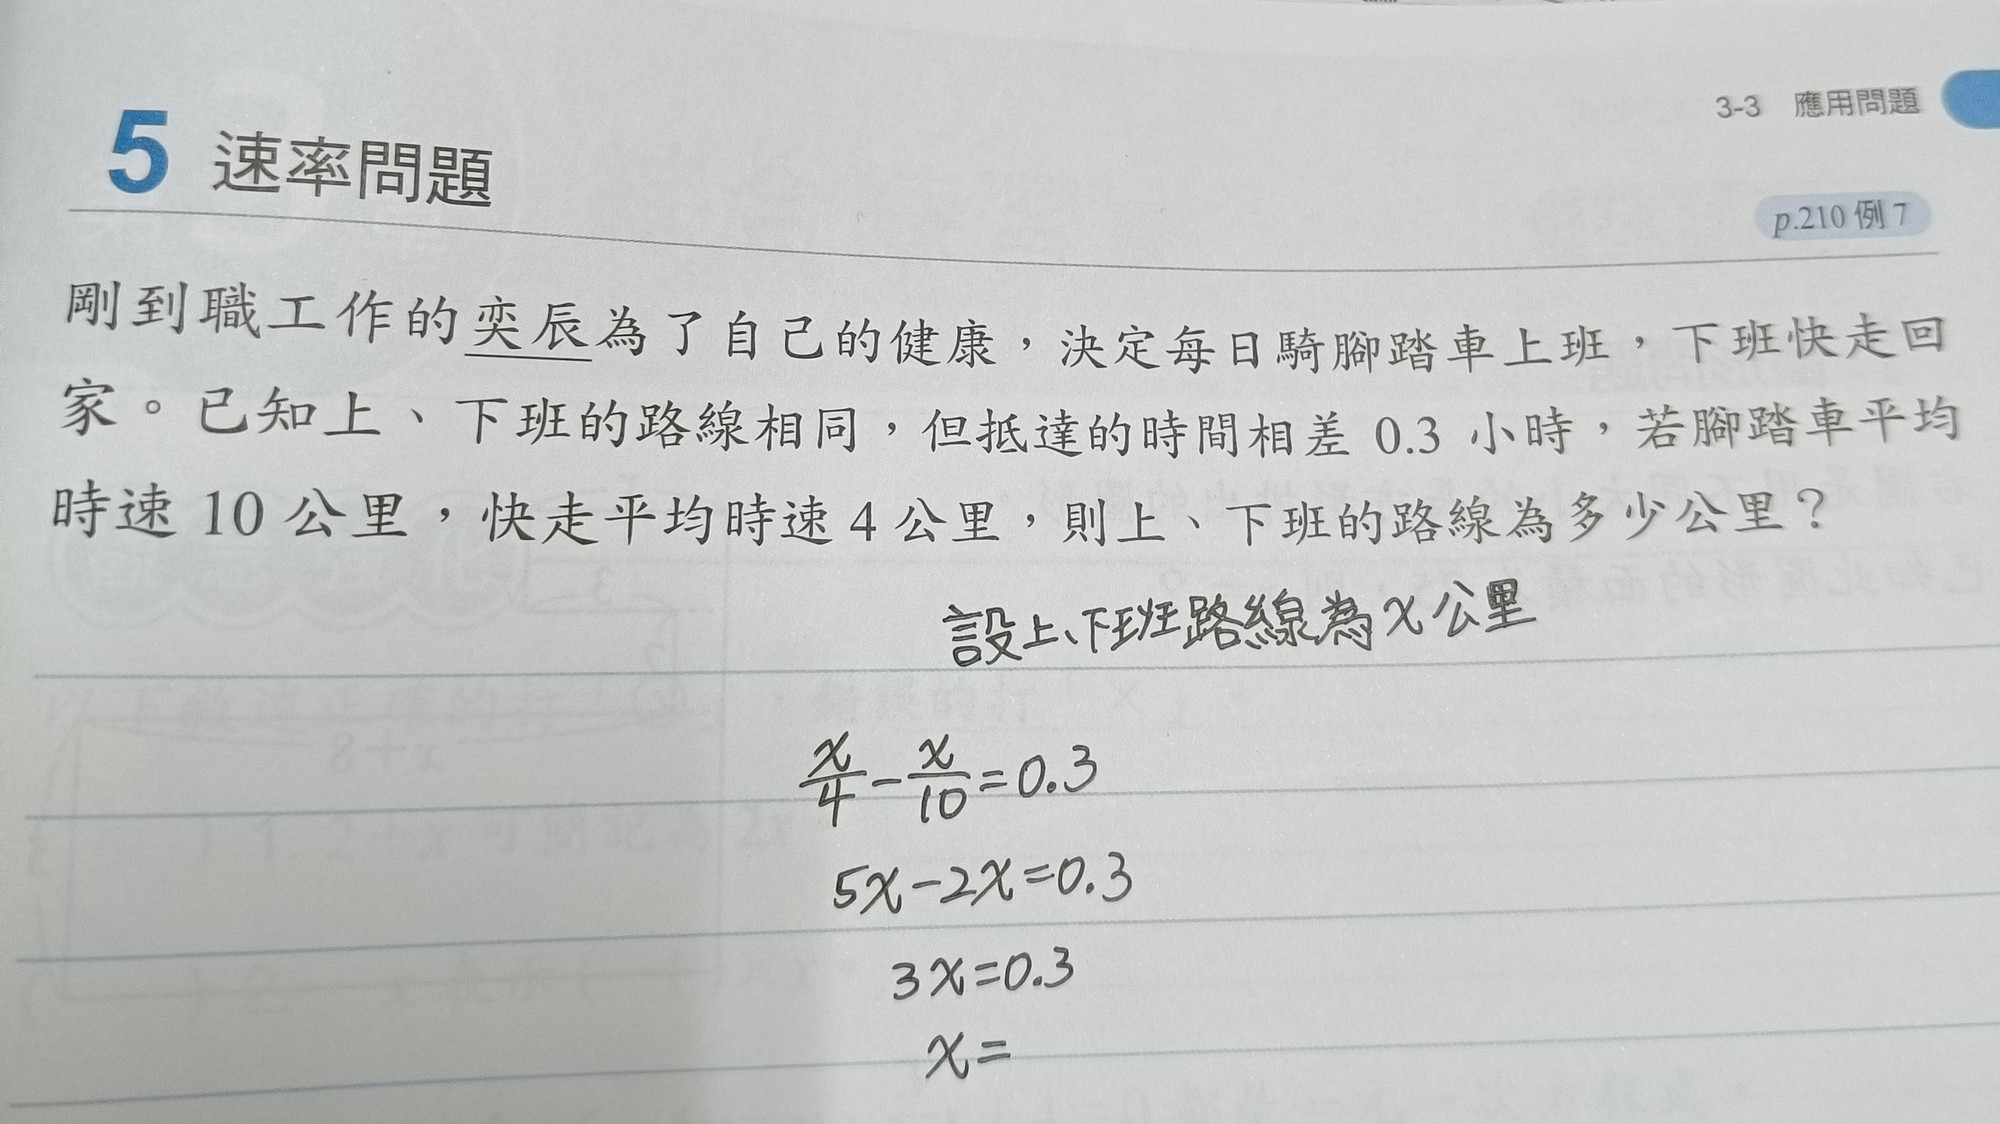 3-3 應用問題
5 速率問題
p.210 例 7
剛到職工作的奕辰為了自己的健康，決定每日騎腳踏車上班，下班快走回
家。已知上、下班的路線相同，但抵達的時間相差 0.3 小時，若腳踏車平均
時速 10 公里，快走平均時速 4 公里，則上、下班的路線為多少公里？
設上、下班路線為x公里
x/4 - x/10 = 0.3
5x-2x=0.3
3x=0.3
x=